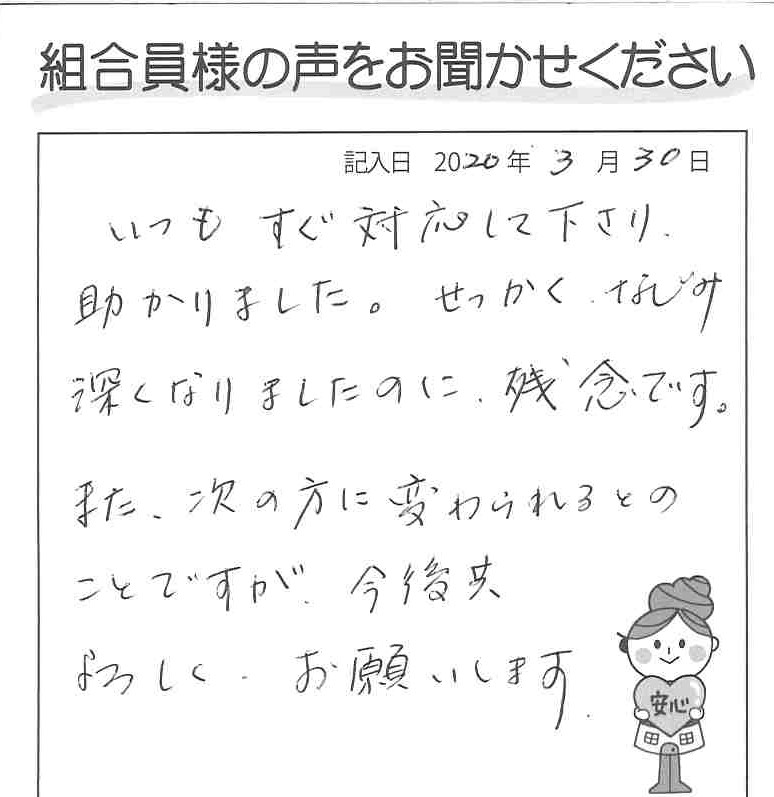 組合員様の声をお聞かせください
記入日 2020年 3月30日
いつも すぐ対応して下さり、
助かりました。せっかく、なじみ
深くなりましたのに、残念です。
また、次の方に変わられるとの
ことですが、今後共
よろしく、お願いします.
安心